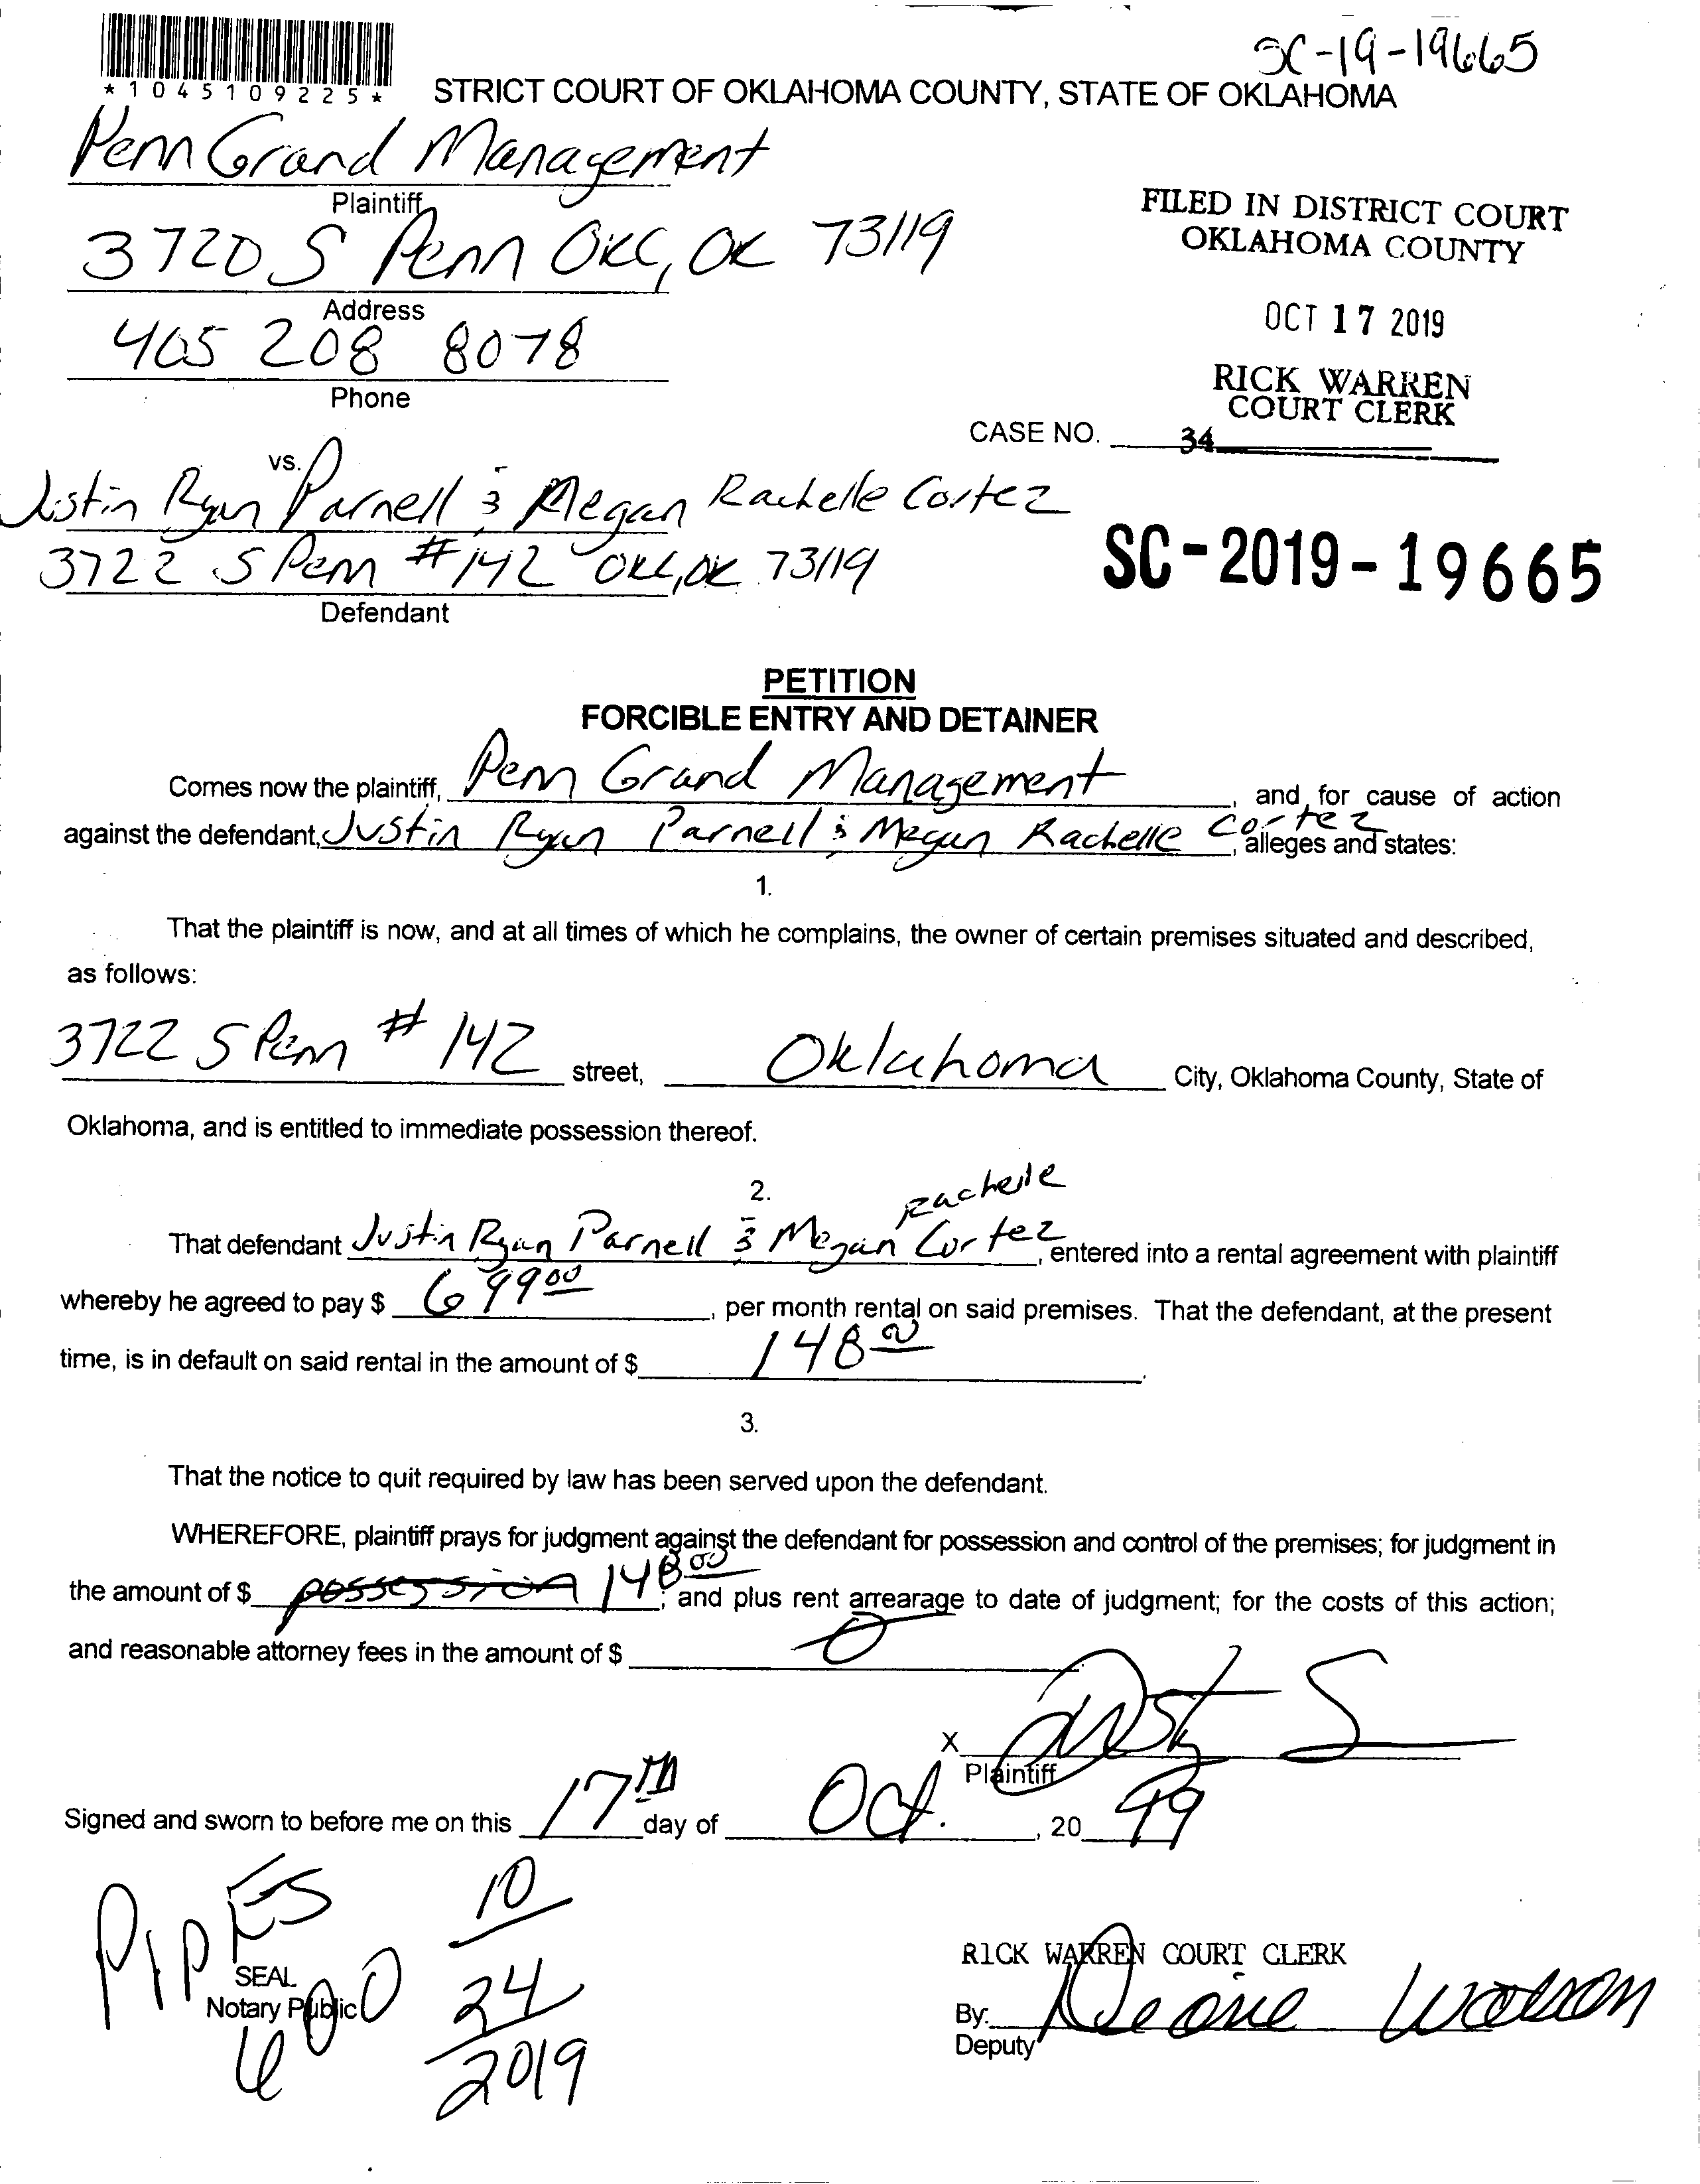 SC-19-19665
*1045109225*
STRICT COURT OF OKLAHOMA COUNTY, STATE OF OKLAHOMA
Penn Grand Management
Plaintiff
3720 S Penn OKC, OK 73119
Address
405 208 8078
Phone
FILED IN DISTRICT COURT
OKLAHOMA COUNTY
OCT 17 2019
RICK WARREN
COURT CLERK
CASE NO. 34
vs.
Justin Ryan Parnell & Megan Rachelle Cortez
3722 S Penn #142 OKC, OK 73119
Defendant
SC-2019-19665
PETITION
FORCIBLE ENTRY AND DETAINER
Comes now the plaintiff, Penn Grand Management, and for cause of action
against the defendant, Justin Ryan Parnell & Megan Rachelle Cortez, alleges and states:
1.
That the plaintiff is now, and at all times of which he complains, the owner of certain premises situated and described,
as follows:
3722 S Penn # 142 street, Oklahoma City, Oklahoma County, State of
Oklahoma, and is entitled to immediate possession thereof.
2.
Rachelle
That defendant Justin Ryan Parnell & Megan Cortez, entered into a rental agreement with plaintiff
whereby he agreed to pay $ 699 00, per month rental on said premises. That the defendant, at the present
time, is in default on said rental in the amount of $ 148 00.
3.
That the notice to quit required by law has been served upon the defendant.
WHEREFORE, plaintiff prays for judgment against the defendant for possession and control of the premises; for judgment in
the amount of $ possession 148 00; and plus rent arrearage to date of judgment; for the costs of this action;
and reasonable attorney fees in the amount of $ 0
X
Plaintiff
Signed and sworn to before me on this 17th day of Oct., 20 19
PIPES
SEAL
Notary Public
600
10
24
2019
RICK WARREN COURT CLERK
By:
Deputy